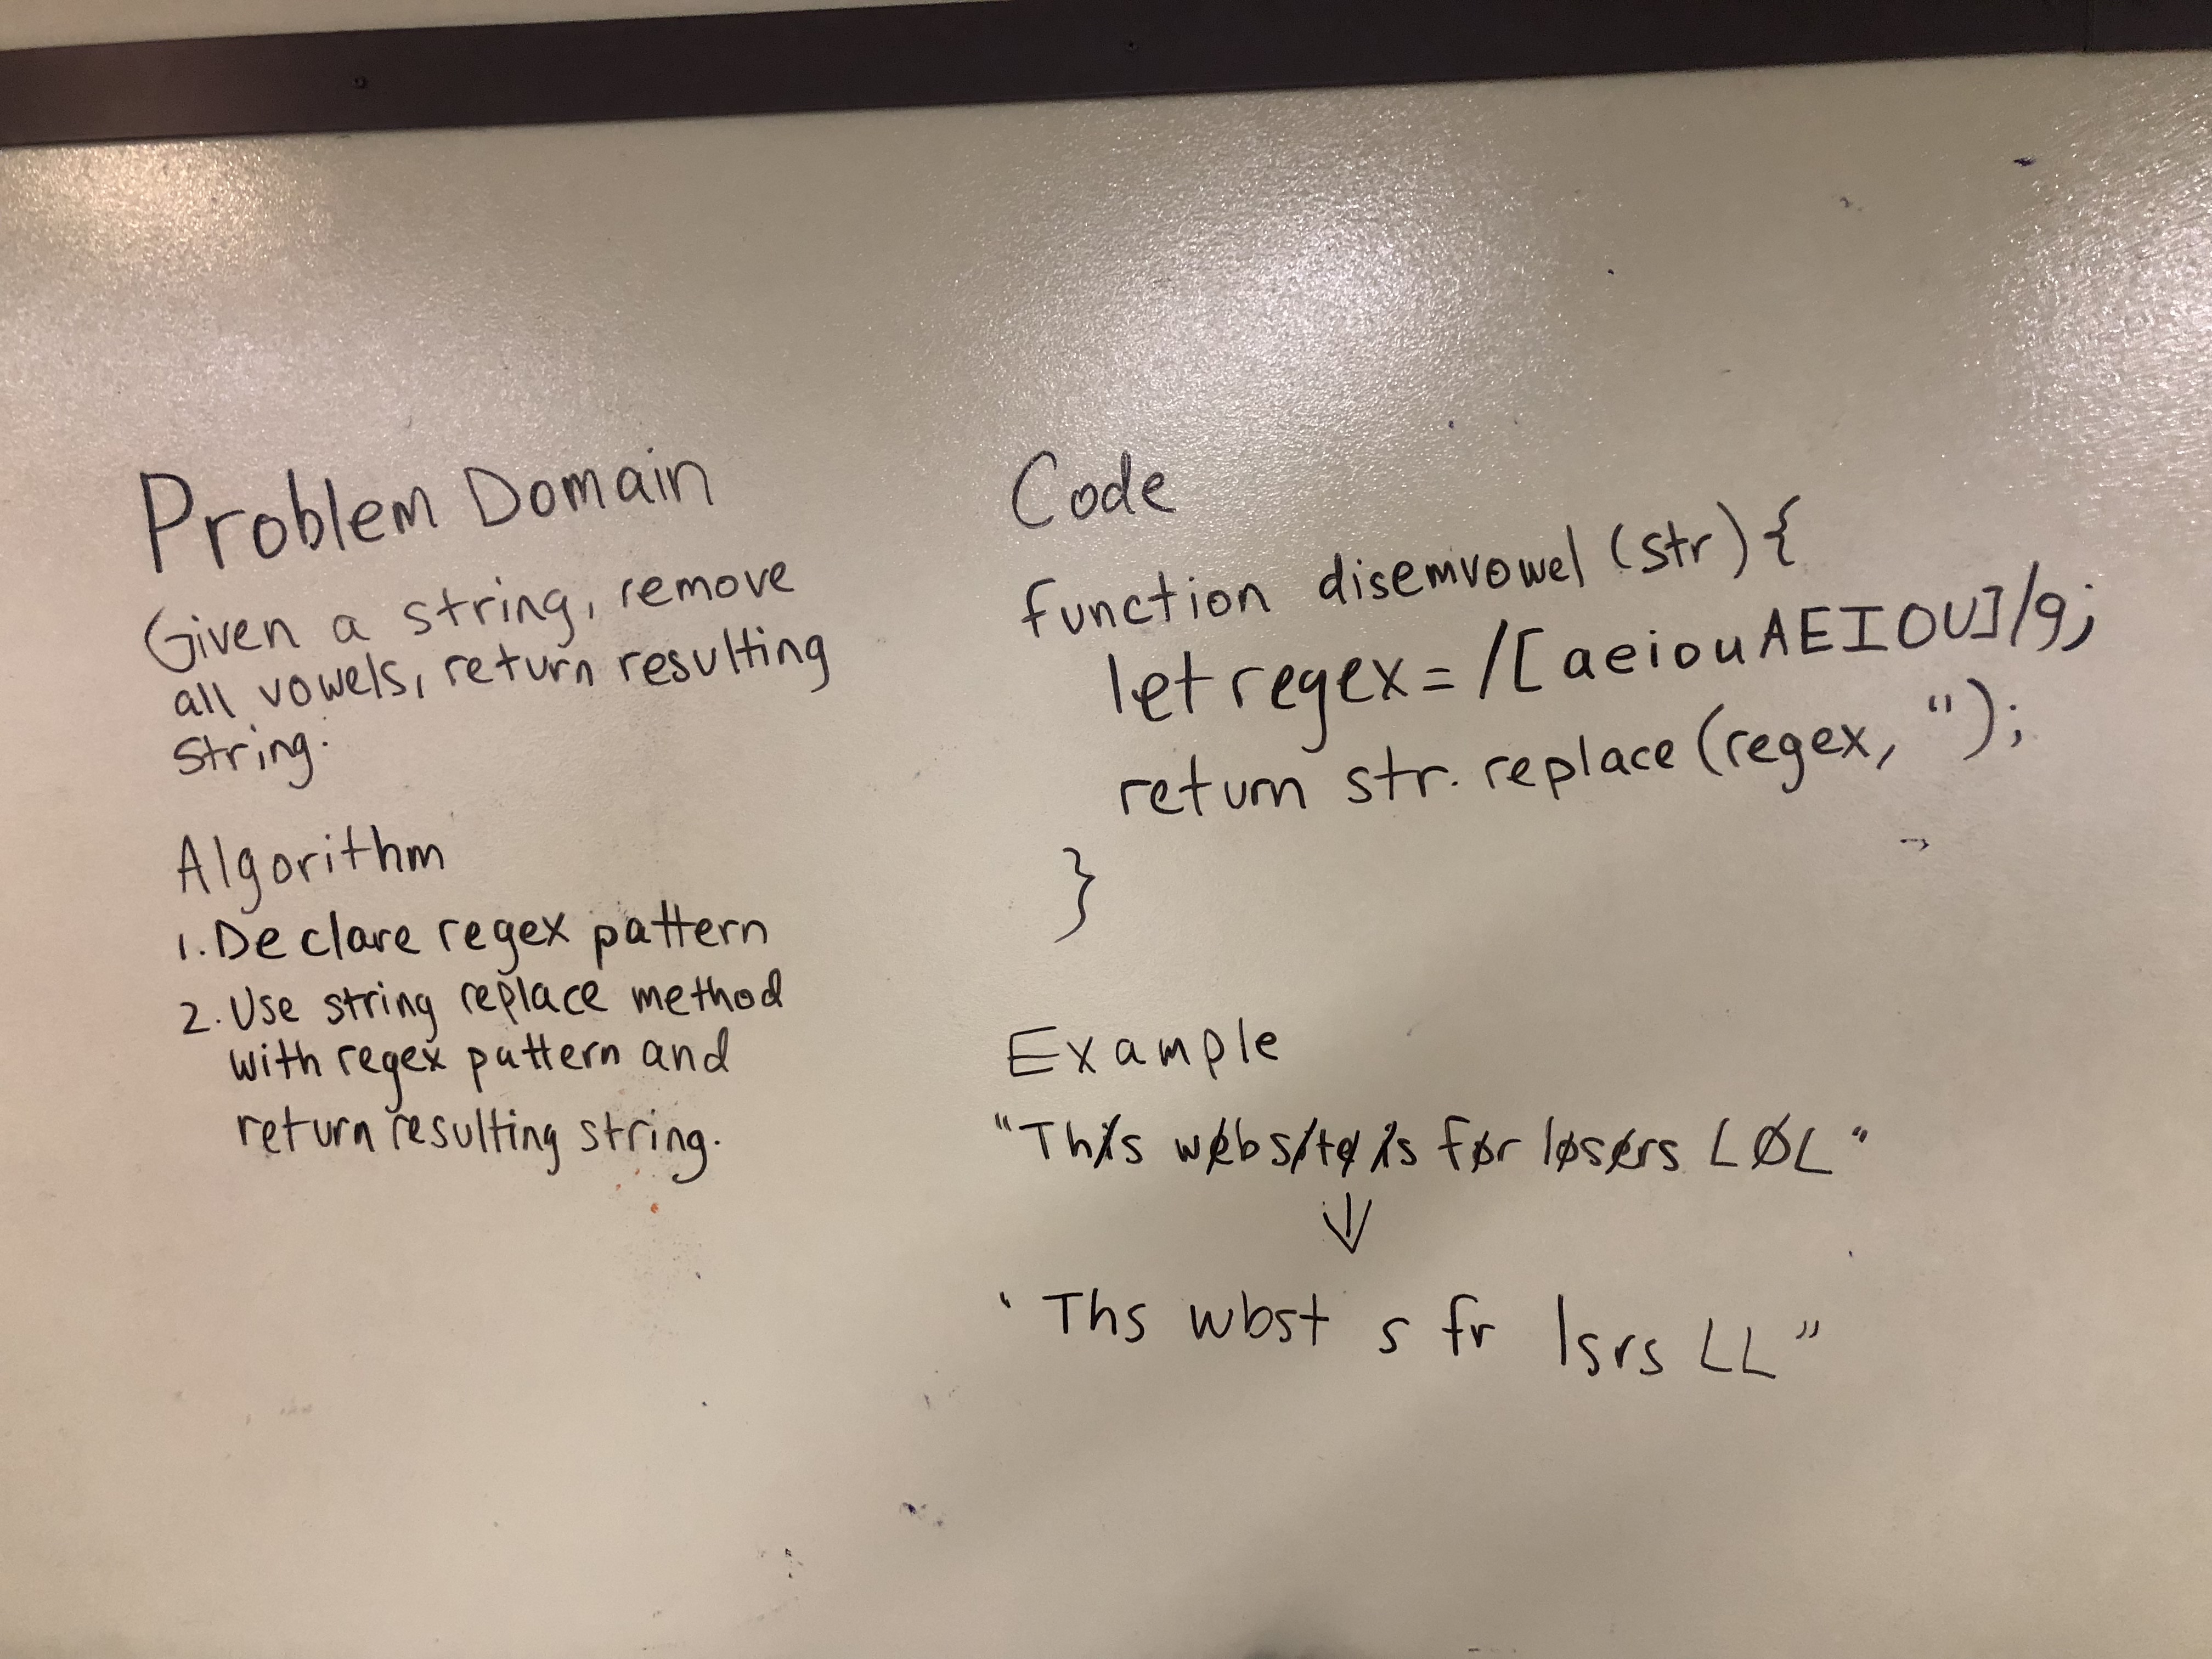 Problem Domain
Given a string, remove
all vowels, return resulting
string.
Algorithm
1. Declare regex pattern
2. Use string replace method
with regex pattern and
return resulting string.
Code
function disemvowel (str) {
let regex = /[aeiouAEIOU]/g;
return str.replace(regex, '');
}
Example
"This website is for losers LOL"
↓
"Ths wbst s fr lsrs LL"